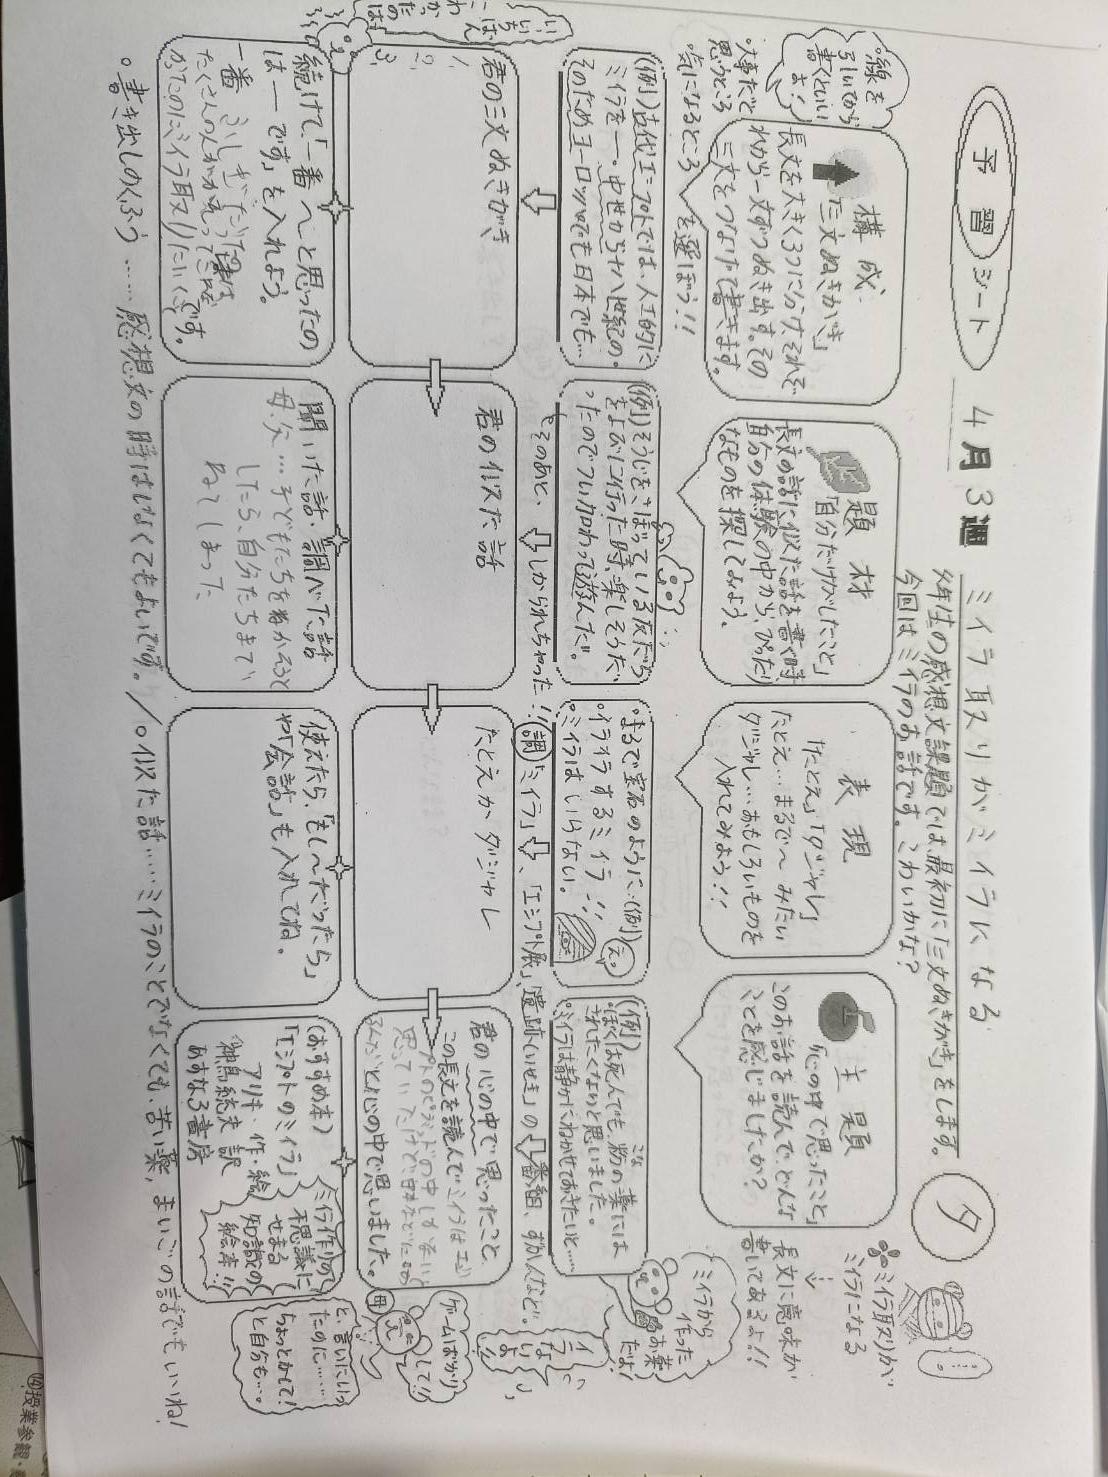 予習シート
4月3週 ミイラ取りがミイラになる
タ
今年生の感想文課題では最初に「三文ぬきがき」をします。
今回はミイラのお話です。こわいかな?
ミイラ取りがミイラになる
↓
長文に意味が書いてあるよ!!
線を引いてから書くといいよ!
構成
「三文ぬきがき」
長文を大きく3つに分け、それぞれから一文ずつぬき出す。その三文をつなげて書きます。
・大事だと思うところ
・気になるところ
を選ぼう!!
題材
「自分だけがしたこと」
長文の話に似た話を書く時自分の体験の中から、ぴったりなものを探してみよう。
表現
「たとえ」「ダジャレ」
たとえ…まるで〜みたい
ダジャレ…おもしろいものを入れてみよう!!
主題
「心の中で思ったこと」
このお話を読んで、どんなことを感じましたか?
(例)古代エジプトでは、人工的にミイラを―。中世から十八世紀の。そのためヨーロッパでも日本でも…
(例)そうじをさぼっている友だちをよびに行った時、楽しそうだったのでつい加わって遊んだ。
そのあと、しかられちゃった!!
まるで宝石のように(例)
・イライラするミイラ!!
・ミイラはいらない。
え。
(例)
・ぼくは死んでも、粉の薬にはされたくないと思いました。
こな
・ミイラは静かにねかせておきたいと……
ミイラから作ったお薬だよ!
ミイラいないよ!!
調「ミイラ」、「エジプト展」、「遺跡(いせき)」の番組、ずかんなど。
君の三文ぬきがき
1.
2.
3.
君の似た話
たとえかダジャレ
君の心の中で思ったこと
この長文を読んでミイラはエジプトのピラミッドの中しかないと思っていたけど日本などにもあるんだと心の中で思いました。
いちばんこわかったのは
続けて「一番〜と思ったのは―です」を入れよう。
一番ふしぎだったのはたくさんの人がかわってこれなかったのにミイラ取りに行くです。
聞いた話・調べた話
母、父…子どもたちをねかそうとしたら、自分たちまでねてしまった
使えたら、「もし〜だったら」や「会話」も入れてね。
(おすすめ本)
「エジプトのミイラ」
アリキ・作・絵
神鳥統夫 訳
あすなろ書房
ミイラ作りの不思議にせまる知識の絵本!!
母
ゲームばかりして!!
と、言いにいったのに……ちょっとかして!と自分も…。
。書き出しのくふう……感想文の時はしなくてもよいです。/。似た話……ミイラのことでなくても、苦い薬、まいごの話でもいいね!
⑭授業参観・